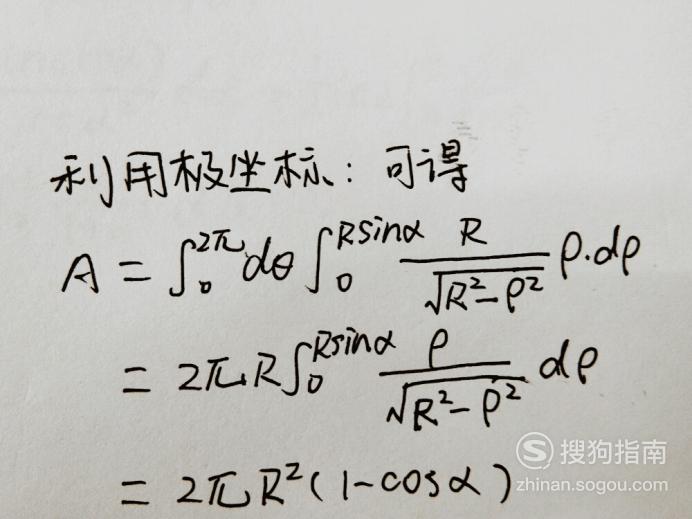 利用极坐标：可得
A = ∫₀^{2π} dθ ∫₀^{Rsinα} R/√(R²-ρ²) ρ·dρ
= 2πR ∫₀^{Rsinα} ρ/√(R²-ρ²) dρ
= 2πR²(1-cosα)
搜狗指南
zhinan.sogou.com